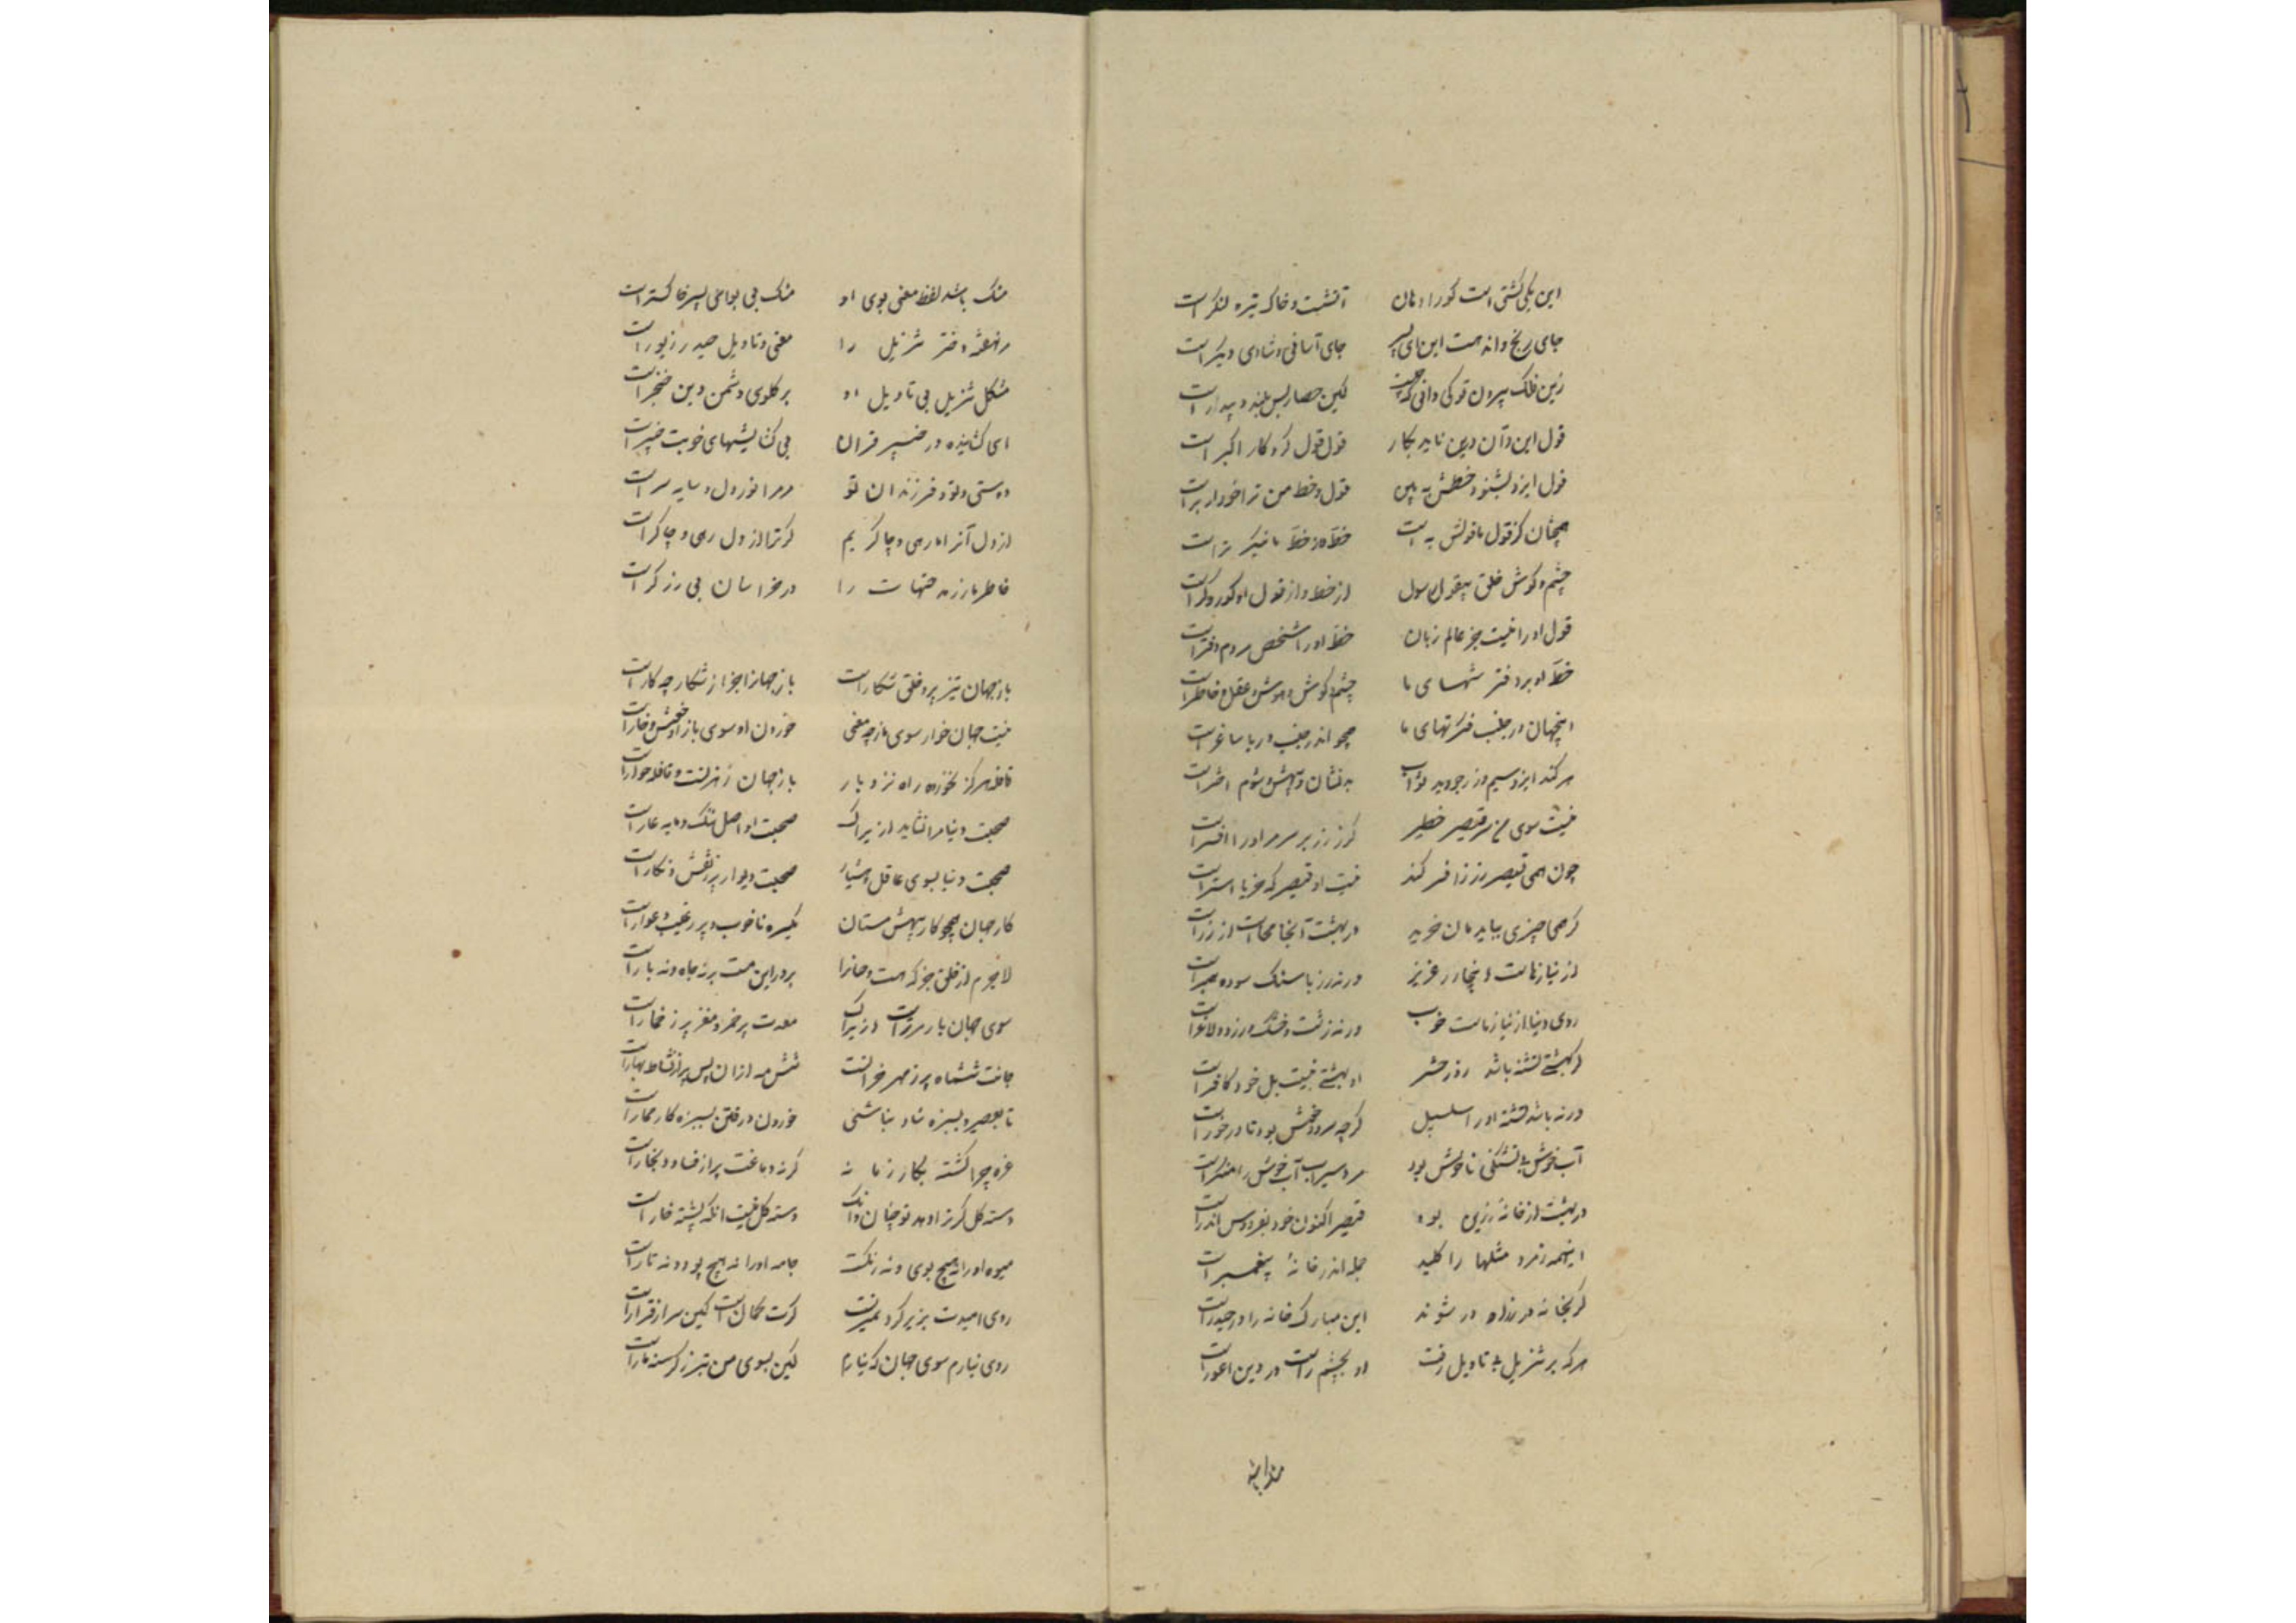 این یکی کشتی است کورا بادبان آتشست و خاک تیره لنگر است
جای رنج و انده است این ای پسر جای آسانی و شادی دیگر است
زین فلک بیرون تو کی دانی که چیست لیکن حصار بس بلند و بیدر است
قول این و آن درین ناید بکار قول قول کردگار اکبر است
قول ایزد بشنو و خطش به بین قول و خط من ترا خود از بر است
همچنان کز قول ما قولش به است خط او از خط ما نیکوتر است
چشم و گوش خلق بیقول رسول از خط و از قول او کور و کر است
قول او را نیست جز عالم زبان خط او را شخص مردم دفتر است
خط او بر دفتر تنهای ما چشم و گوش و هوش و عقل و خاطر است
اینجهان در جنب فکرتهای ما همچو اندر جنب دریا ساغر است
هر کند ایزد بسیم و زر جو وعده ثواب بدنشان و بیهش و شوم اختر است
نیست سوی من سر قیصر خطیر گر ز زر بر سر مر او را افسر است
چون همی قیصر ز زر افسر کند نیست او قیصر که خر یا استر است
گر همی چیزی بباید مان خرید در بهشت آنجا محالست ار زر است
از نیاز ماست اینجا زر عزیز ورنه زر با سنک سوده همبر است
روی دنیا از نیاز ماست خوب ورنه زشت و خشک و زرد و لاغر است
گر بهشتی تشنه باشد روز حشر او بهشتی نیست بل خود کافر است
ورنه باشد تشنه او را سلسبیل گرچه سرد و خوش بود نادرخور است
آب خوش بی تشنگی ناخوش بود مرد سیراب آب خوش را منکر است
در بهشت ار خانه زرین بود قیصر اکنون خود بفردوس اندر است
اینهمه رمز و مثلها را کلید جمله اندر خانهٔ پیغمبر است
گر بخانه در ز راه در شوند این مبارک خانه را در حیدر است
هر که بر تنزیل بی تاویل رفت او بچشم راست در دین اعور است
مشک باشد
مشک باشد لفظ معنی بوی او مشک بی بو ای پسر خاکستر است
نهفته دختر تنزیل را معنی و تاویل حیدر زیور است
مشکل تنزیل بی تاویل او بر گلوی دشمن دین خنجر است
ای گشاینده در خیبر قران بی گشایشهای خوبت خیبر است
دوستی تو و فرزندان تو مر مرا نور دل و سایه سر است
از دل آنرا ما رهی و چاکریم کو ترا از دل رهی و چاکر است
خاطر ما زر مدحتهات را در خراسان بی زرگر است
باز جهان تیزپر و خلق شکار است باز جهانرا جز از شکار چه کار است
نیست جهان خوار سوی ما ز چه معنی خوردن او سوی باز او خوش و خار است
قافله هرگز نخورد و راه نزد باز باز جهان رهزنست و قافله خوار است
صحبت دنیا مرا نشاید ازیراک صحبت او اصل ننگ و مایه عار است
صحبت دنیا بسوی عاقل هشیار صحبت دیوار پر ز نقش و نگار است
کار جهان همچو کار بیهش مستان یکسره ناخوب و پر ز عیب و عوار است
لاجرم از خلق جز که مست و خسانرا بر در این مست بر نه جاه و نه بار است
سوی جهان بار مر تراست ازیراک معدت پر خمر و مغز پر ز خمار است
جانت ششماه پر ز مهر خزانست شش مه از آن پس پر از نشاط بهار است
تا بعصیر و بسبزه شاد نباشی خوردن و رفتن بسبزه کار حمار است
غره چرا گشتهٔ بکار زمانه گرنه دماغت پر از فساد و بخار است
دسته گل گر ترا دهد تو چنان دانک دسته گل نیست آنکه پشته خار است
میوه او را نه هیچ بوی و نه رنگست جامه او را نه هیچ پود و نه تار است
روی امیدت بزیر گرد نمیدیست گرت گمانست کین سرای قرار است
روی نیارم سوی جهان که نیارم لیکن بسوی من بتر ز گرسنه مار است